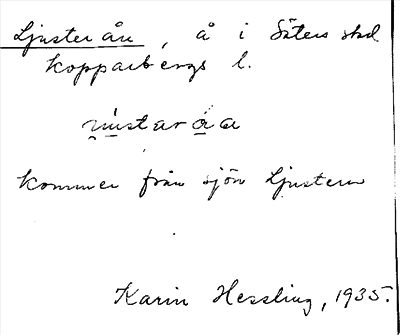 Ljusterån, å i Säters skd.
Kopparbergs l.
kommer från sjön Ljustern
Karin Hessling, 1935.